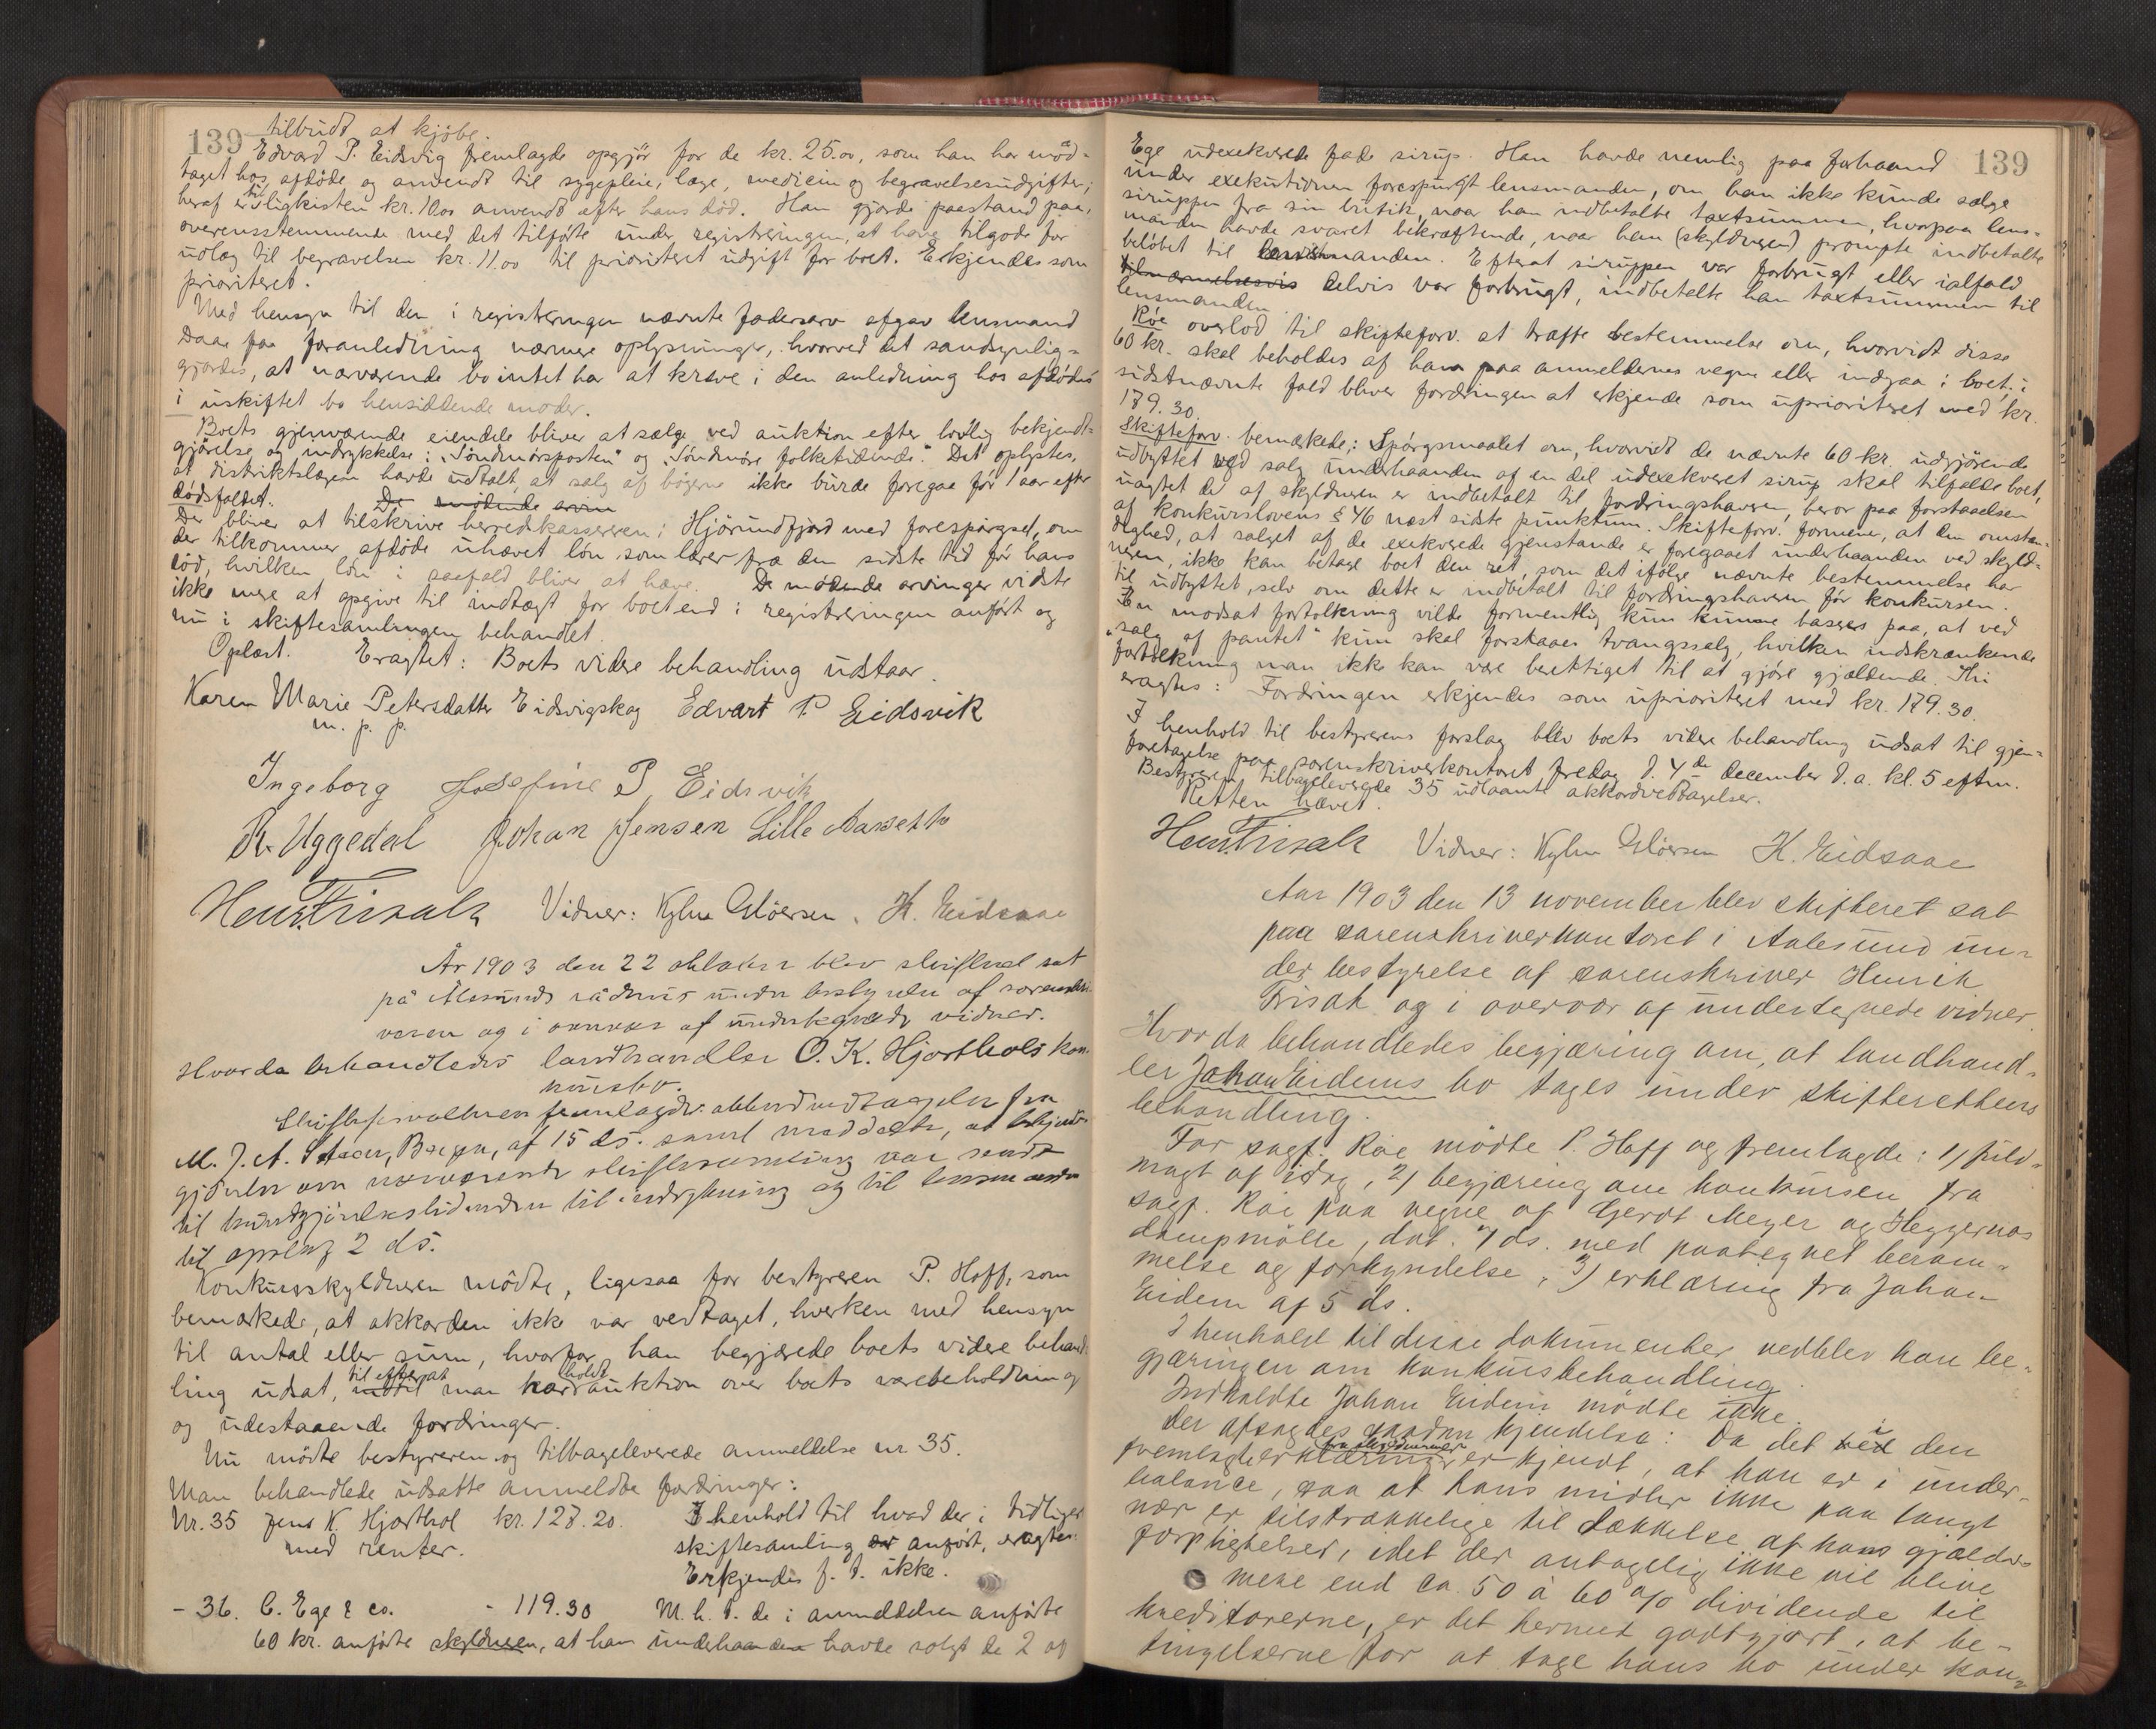 139
tilbudt at kjöbe.
Edvard P. Eidsvig fremlagde opgjör for de kr. 25.00, som han har mod-
taget hos afdöde og anvendt til sygepleie, læge, medicin og begravelsesudgifter;
heraf er til ligkisten kr. 10.00 anvendt efter hans död. Han gjorde paastand paa,
overensstemmende med det tilförte under registreringen, at have tilgode for
udlæg til begravelsen kr. 11.00 til prioriteret udgift for boet. Erkjendes som
prioriteret.
Med hensyn til den i registreringen nævnte fadersarv afgav lensmand
Daae paa foranledning nærmere oplysninger, hvorved det sandsynlig-
gjordes, at nærværende bo intet har at kræve i den anledning hos afdödes
i uskiftet bo hensiddende moder.
Boets gjenværende eiendele bliver at sælge ved auktion efter lovlig bekjendt-
gjörelse og indrykkelse i "Söndmörsposten" og "Söndmöre folketidende". Det oplystes,
at distriktslægen havde udtalt, at salg af bögerne ikke burde foregaa för 1 aar efter
dödsfaldet. De mödende arvin
Der bliver at tilskrive herredskassereren i Hjörundfjord med forespörgsel, om
der tilkommer afdöde uhævet lön som lærer fra den sidste tid för hans
död, hvilken lön i saafald bliver at hæve. De mödende arvinger vidste
ikke mere at opgive til indtægt for boet end i registreringen anfört og
nu i skiftesamlingen behandlet.
Oplæst. Eragtet: Boets videre behandling udstaar.
Karen Marie Petersdatter Eidsvigskog Edvart P Eidsvik
m. p. p.
Ingeborg Josefine P, Eidsvik
R. Uggedal Johan Jensen Lille Aarseth
Henr. Frisak Vidner: Kylm Glöersen. H. Eidsaae
År 1903 den 22 oktober blev skifteret sat
på Ålesunds rådhus under bestyrelse af sorenskri-
veren og i overvær af undertegnede vidner.
Hvorda behandledes landhandler O. K. Hjorthols kon-
kursbo.
Skifteforvalteren fremlagde akkordvedtagelse fra
M. J. A. , Bergen, af 15 ds. samt meddelte, at bekjendt-
gjörelse om nærværende skiftesamling var sendt
til kundgjörelsestidenden til indrykning og til lensmanden
til opslag 2 ds.
Konkursskyldneren mödte, ligesaa for bestyreren P. Hoff, som
bemærkede, at akkorden ikke var vedtaget, hverken med hensyn
til antal eller sum, hvorfor han begjærede boets videre behand-
ling udsat, indtil til efter at man har holdt auktion over boets varebeholdning
og udestaaende fordringer.
Nu mödte bestyreren og tilbageleverede anmeldelse nr 35.
Man behandlede udsatte anmeldte fordringer:
Nr. 35 Jens K. Hjorthol kr. 128.20. I henhold til hvad der i tidligere
med renter. skiftesamling er anfört, eragtes:
Erkjendes f. t. ikke.
- 36. C. Ege & co. - 119.30 M. h. t. de i anmeldelsen anförte
60 kr. anförte skyldneren, at han underhaanden havde solgt de 2 af
139
Ege udexekverede fade sirup. Han havde nemlig paa forhaand
under exekutionen forespurgt lensmanden, om han ikke kunde sælge
siruppen fra sin butik, naar han indbetalte taxtsummen, hvorpaa lens-
manden havde svaret bekræftende, naar han (skyldneren) prompte indbetalte
belöbet til lensmanden. Efterat siruppen var forbrugt eller ialfald
tilnærmelsesvis delvis var forbrugt, indbetalte han taxtsummen til
lensmanden.
Röe overlod til skifteforv. at træffe bestemmelse om, hvorvidt disse
60 kr. skal beholdes af ham paa anmeldernes vegne eller indgaa i boet; i
sidstnævnte fald bliver fordringen at erkjende som uprioriteret med kr.
179.30.
Skifteforv. bemærkede: Spörgsmaalet om, hvorvidt de nævnte 60 kr. udgjörende
udbyttet ved salg underhaanden af en del udexekveret sirup skal tilfalde boet,
uagtet de af skyldneren er indbetalt til fordringshaveren, beror paa forstaaelsen
af konkurslovens § 46 næst sidste punktum. Skifteforv. formener, at den omstæn-
dighed, at salget af de exekverede gjenstande er foregaaet underhaanden ved skyld-
neren, ikke kan betage boet den ret, som det ifölge nævnte bestemmelse har
til udbyttet, selv om dette er indbetalt til fordringshaveren för konkursen.
En modsat fortolkning vilde formentlig kun kunne baseres paa, at ved
"salg af pantet" kun skal forstaaes tvangssalg, hvilken indskrænkende
fortolkning man ikke kan være berettiget til at gjöre gjældende. Thi
eragtes: Fordringen erkjendes som uprioriteret med kr. 179.30.
I henhold til bestyrerens forslag blev boets videre behandling udsat til gjen-
foretagelse paa sorenskriverkontoret fredag d. 4de december d. a. kl. 5 eftm.
Bestyreren tilbageleverede 35 udlaante akkordvedtagelser.
Retten hævet.
Henr. Frisak Vidner: Kylm Glöersen H. Eidsaae
Aar 1903 den 13 november blev skifteret sat
paa sorenskriverkontoret i Aalesund un-
der bestyrelse af sorenskriver Henrik
Frisak og i overvær af undertegnede vidner.
Hvorda behandledes begjæring om, at landhand-
ler Johan Eidems bo tages under skifterettens
behandling.
For sagf. Röe mödte P. Hoff og fremlagde: 1) fuld-
magt af idag, 2) begjæring om konkursen fra
sagf. Röe paa vegne af Gerdt Meyer og Heggernæs
dampmölle, dat. 4 ds. med paategnet beram-
melse og forkyndelse, 3) erklæring fra Johan
Eidem af 5 ds.
I henhold til disse dokumenter vedblev han be-
gjæringen om konkursbehandling.
Indkaldte Johan Eidem mödte ikke.
Der afsagdes saadan kjendelse: Da det ved i den
fremlagte erklæring fra skyldneren er kjendt, at han er i under-
balance, saa at hans midler ikke paa langt
nær er tilstrækkelige til dækkelse af hans gjælds-
forpligtelser, idet der antagelig ikke vil blive
mere end ca. 50 à 60 % dividende til
kreditorerne, er det hermed godtgjort, at be-
tingelserne for at tage hans bo under kon-